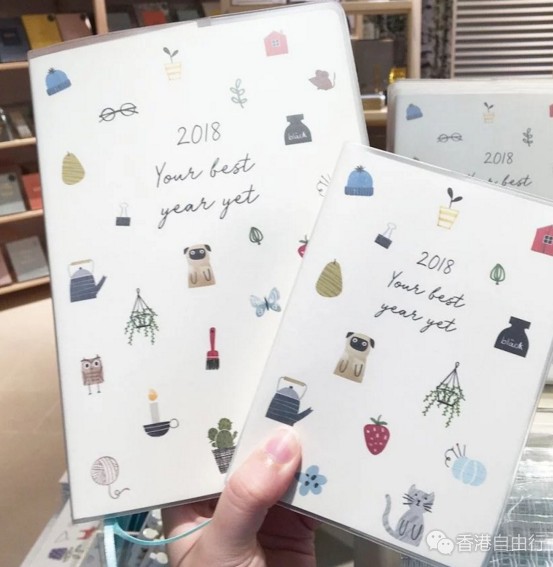 2018
Your best
year yet
bläck
2018
Your best
year yet
bläck
2018
Your best
香港自由行